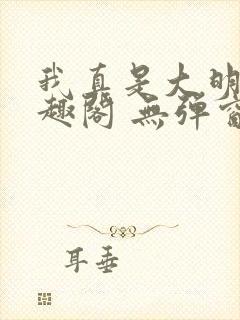 我真是大明
趣阁 無弹窗
耳垂